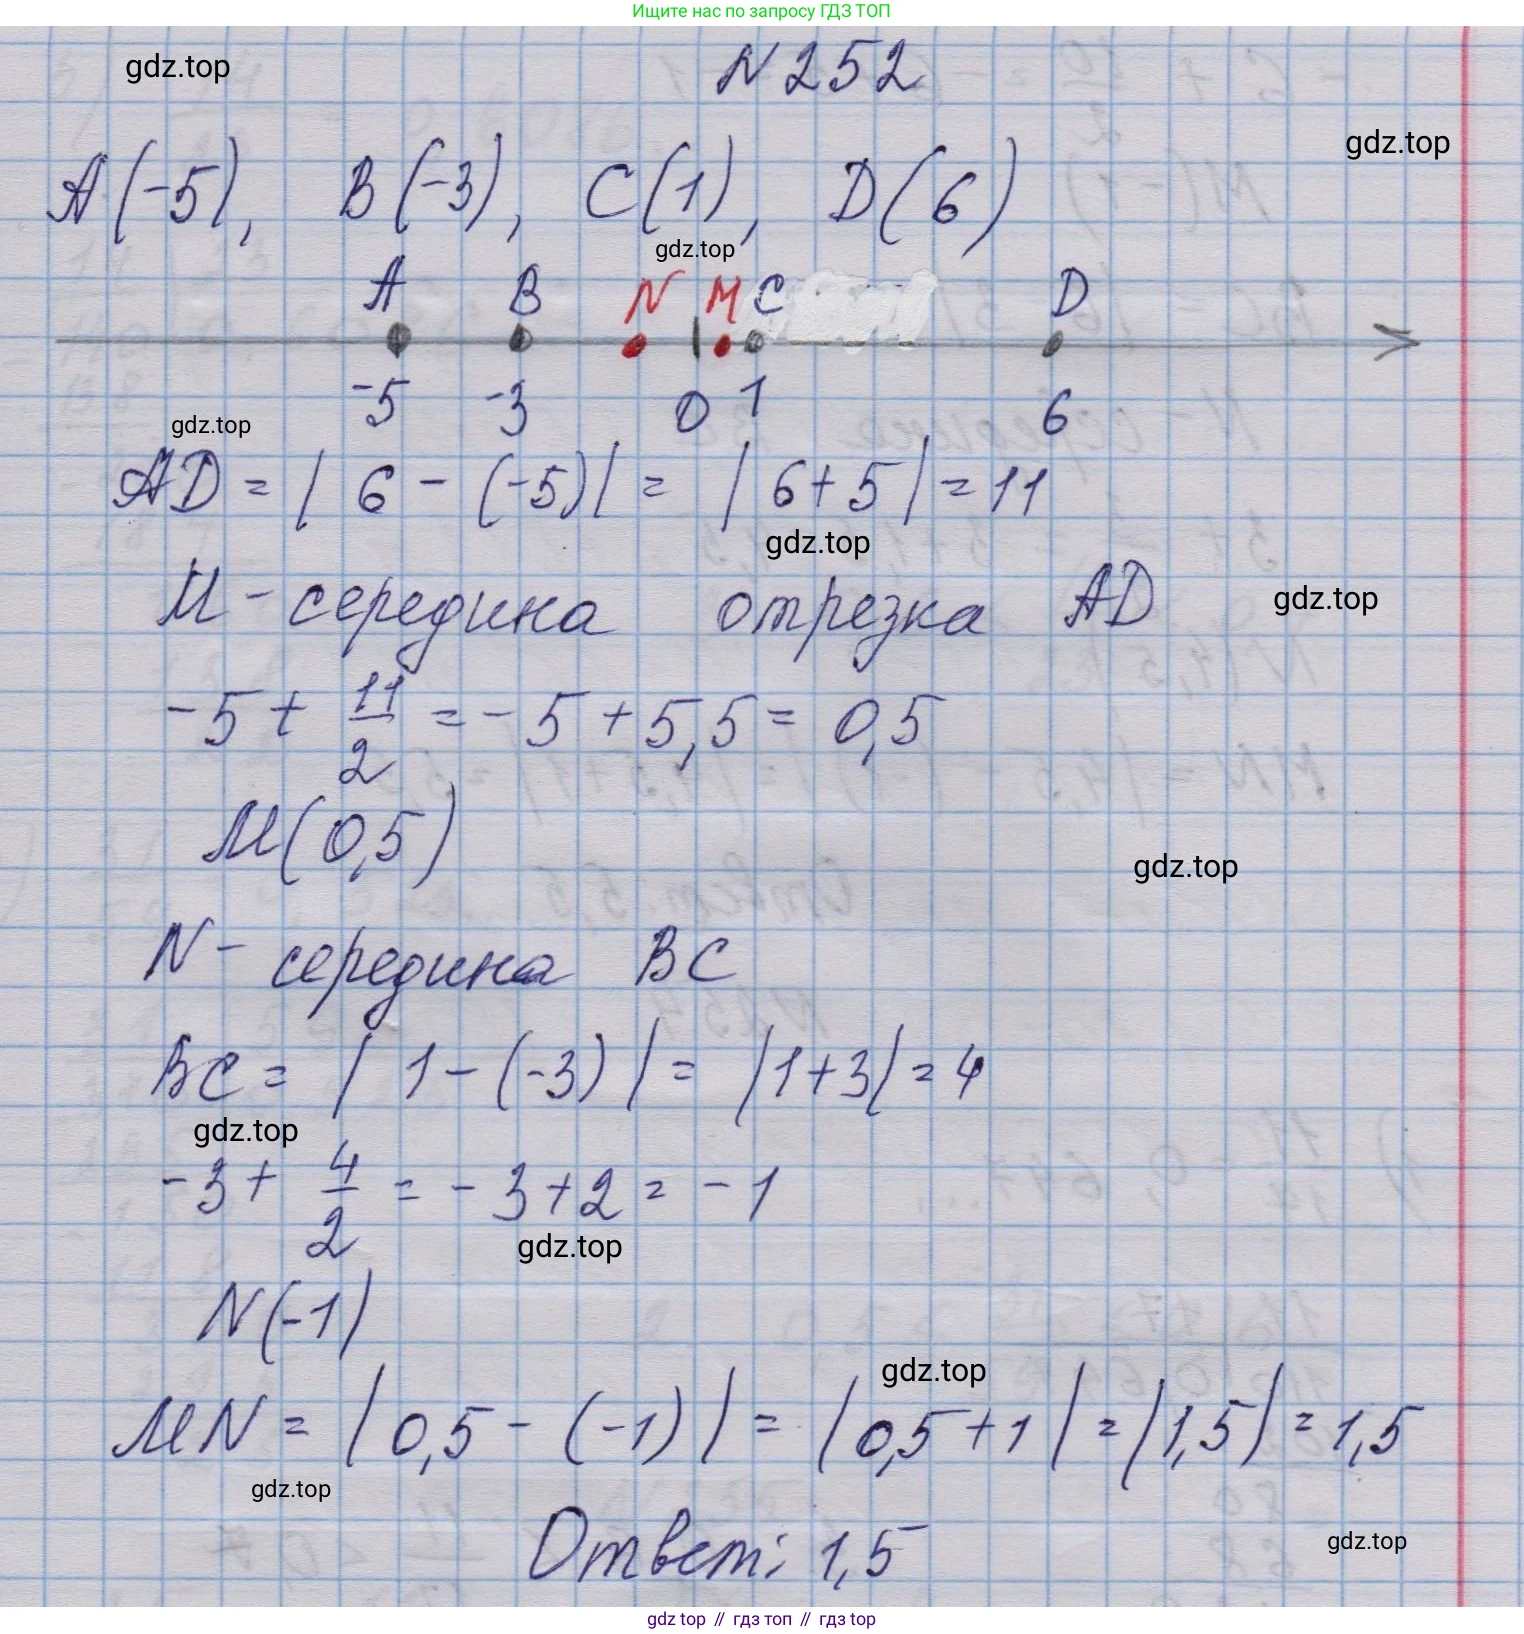 Ищите нас по запросу ГДЗ ТОП
gdz.top
N 252
gdz.top
A(-5), B(-3), C(1), D(6)
gdz.top
A B N M C D
-5 -3 0 1 6
gdz.top
AD = | 6 - (-5)| = | 6+5 | = 11
gdz.top
M - середина отрезка AD
gdz.top
-5 + 11/2 = -5 + 5,5 = 0,5
M(0,5)
gdz.top
N - середина BC
BC = | 1 - (-3) | = |1+3| = 4
gdz.top
-3 + 4/2 = -3+2 = -1
gdz.top
N(-1)
gdz.top
MN = | 0,5 - (-1) | = | 0,5 + 1 | = |1,5| = 1,5
gdz.top
Ответ: 1,5
gdz.top
gdz top // гдз топ // гдз top